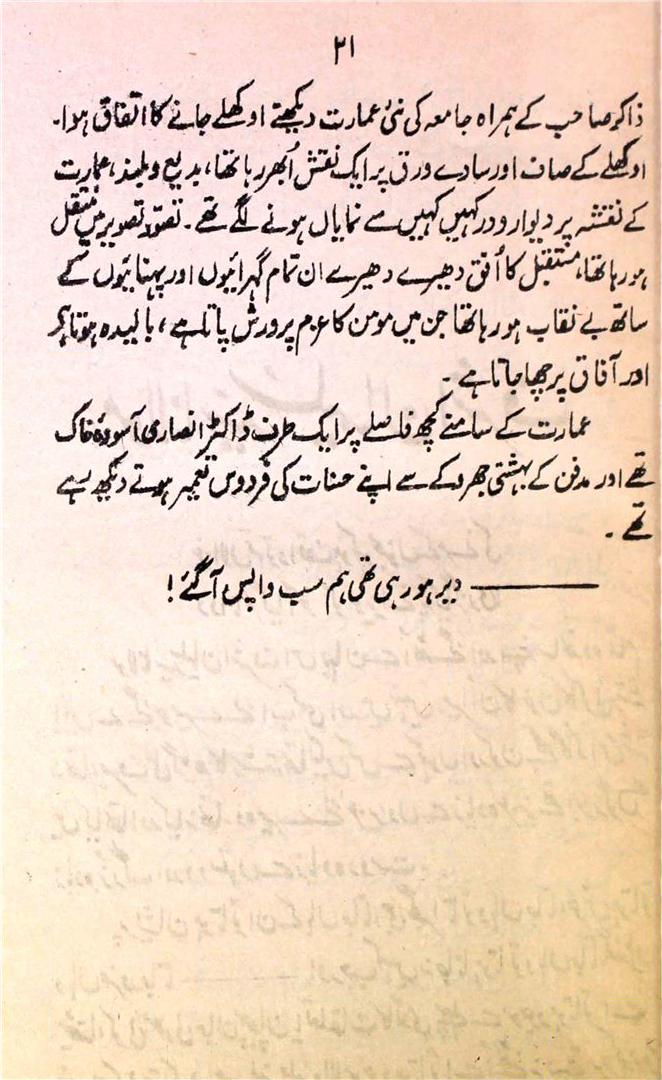 ۲۱
ذاکر صاحب کے ہمراہ جامعہ کی نئی عمارت دیکھنے اوکھلے جانے کا اتفاق ہوا۔
اوکھلے کے صاف اور سادے ورق پر ایک نقش اُبھر رہا تھا، بدیع و بلند، عمارت
کے نقشہ پر دیوار و در کہیں کہیں سے نمایاں ہونے لگے تھے۔ تصوّر تصویر میں منتقل
ہو رہا تھا، مستقبل کا اُفق دھیرے دھیرے ان تمام گہرائیوں اور پہنائیوں کے
ساتھ بے نقاب ہو رہا تھا جن میں مومن کا عزم پرورش پاتا ہے، بالیدہ ہوتا ہے
اور آفاق پر چھا جاتا ہے۔
عمارت کے سامنے کچھ فاصلے پر ایک طرف ڈاکٹر انصاری آسودۂ خاک
تھے اور مدفن کے بہشتی جھروکے سے اپنے حسنات کی فردوس تعمیر ہوتے دیکھ رہے
تھے۔
——— دیر ہو رہی تھی ہم سب واپس آ گئے!